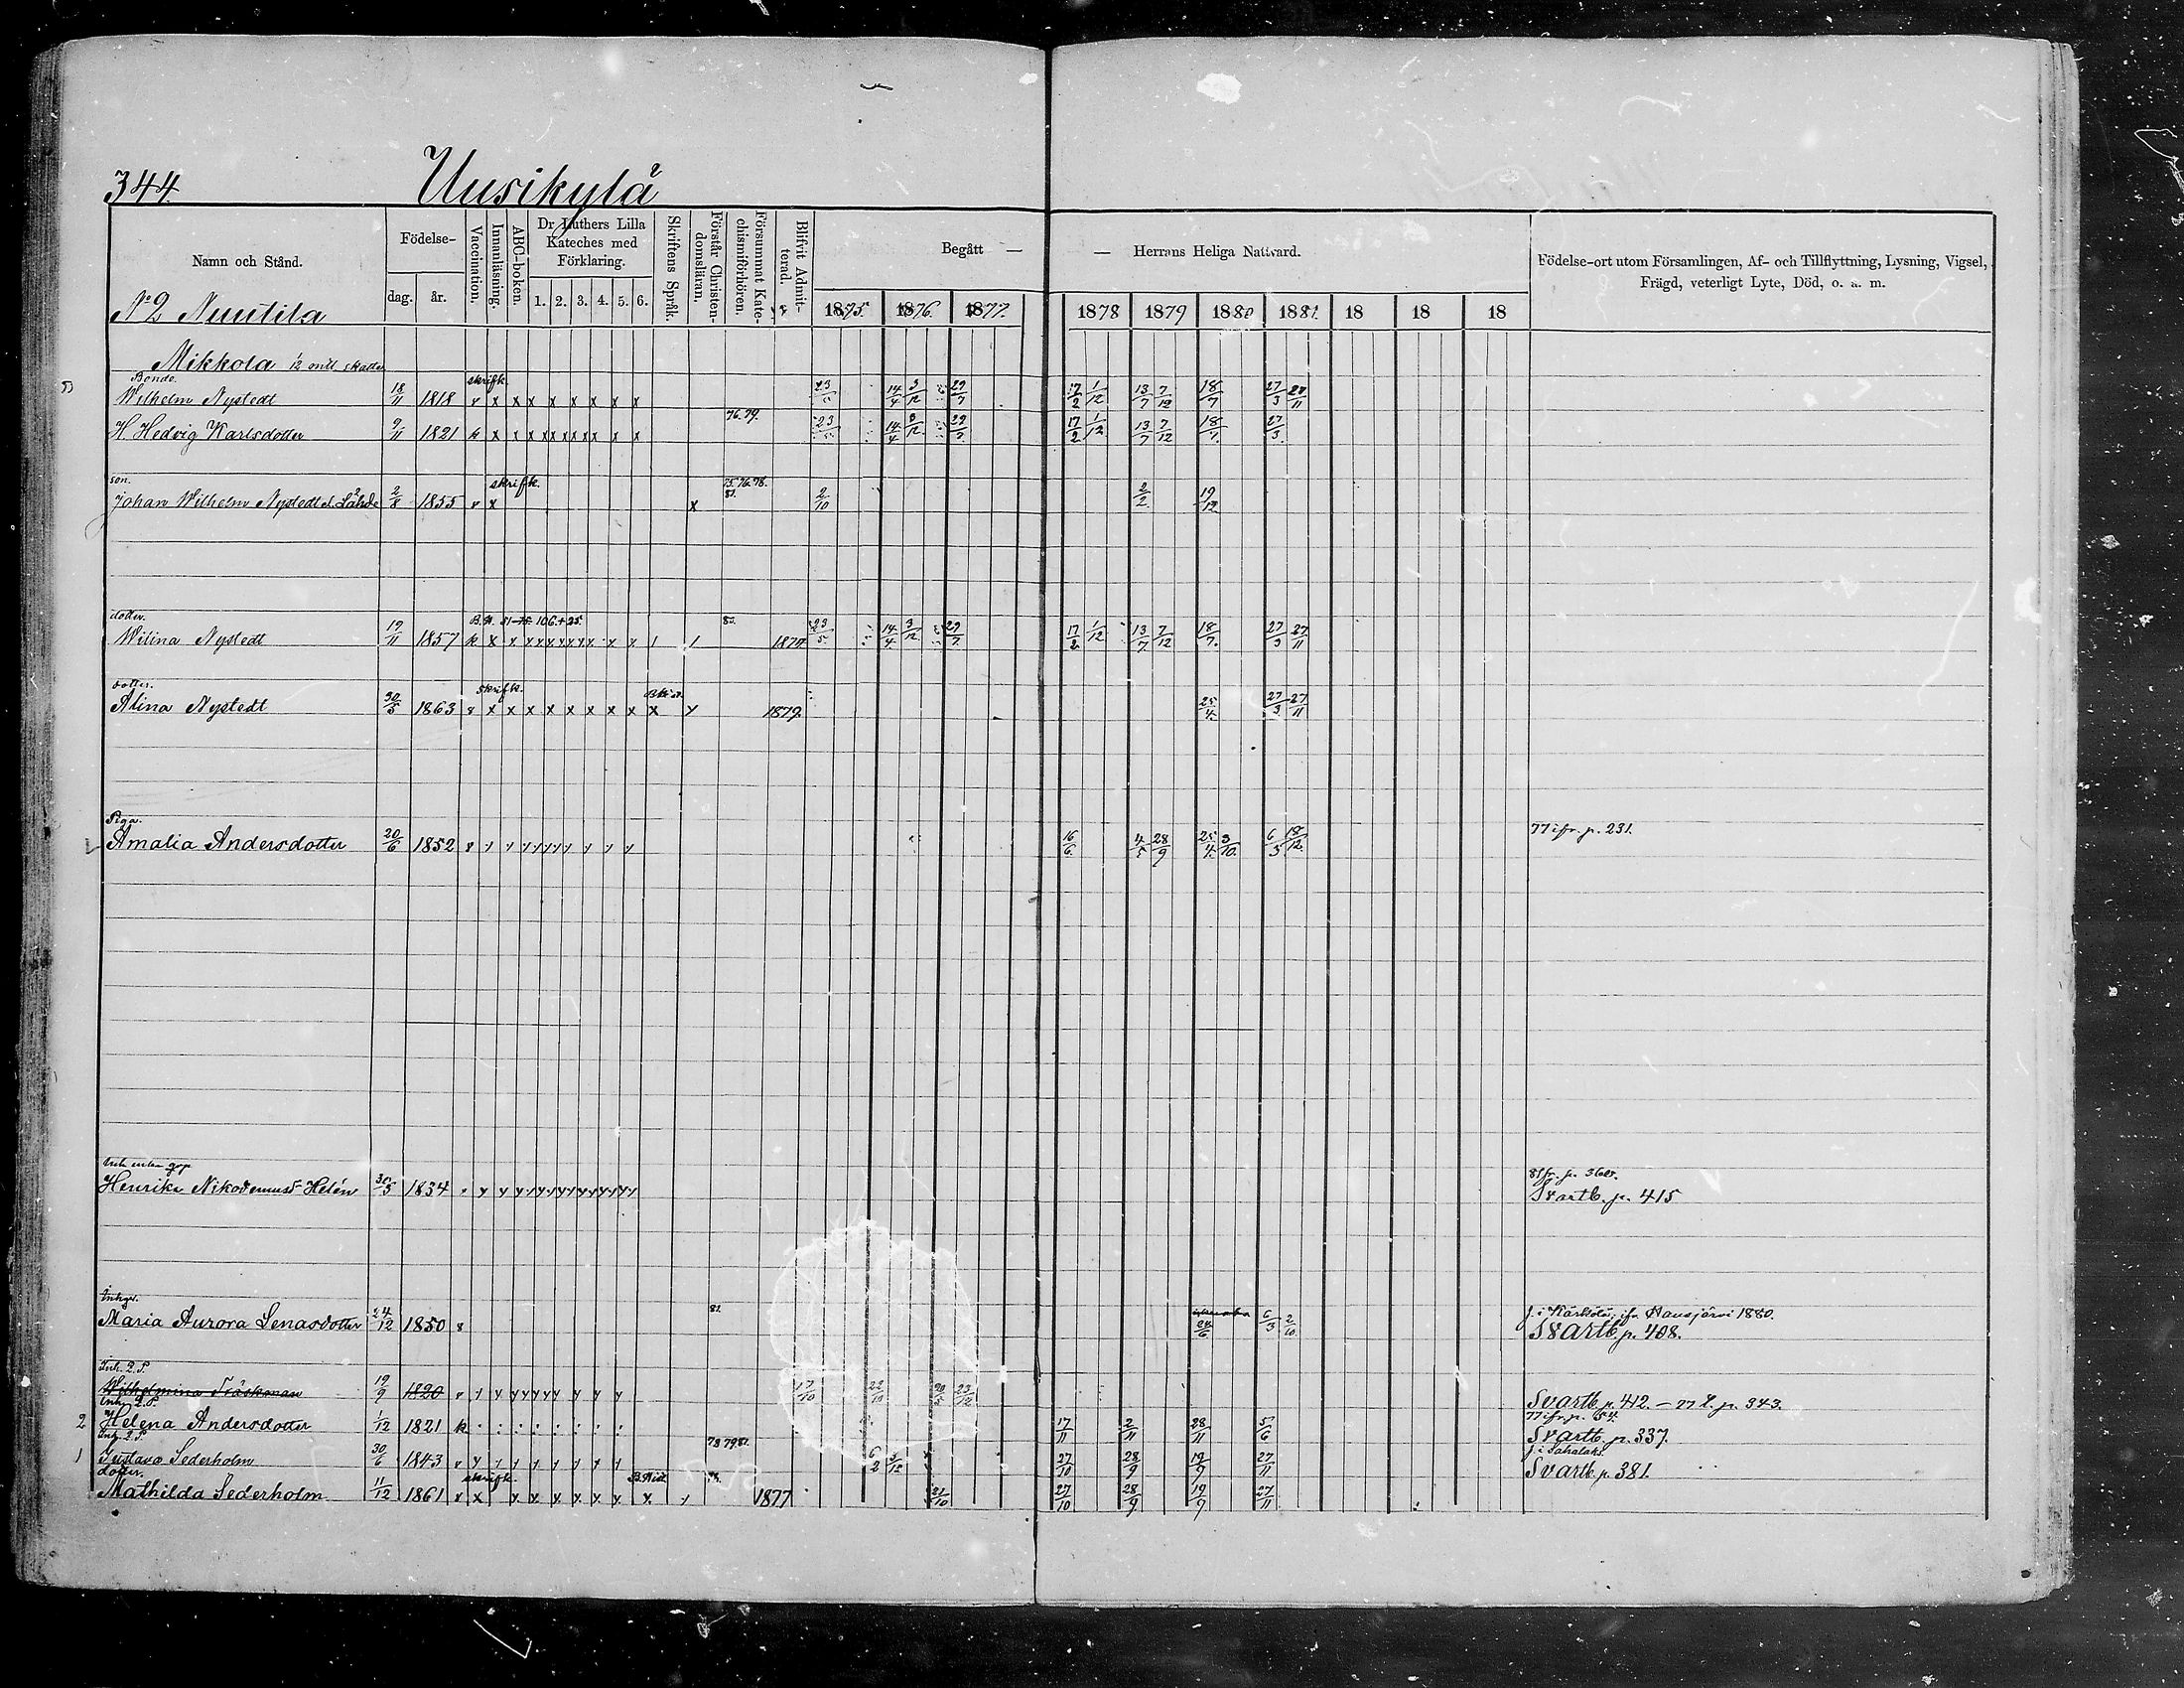 344. Uusikylä
Namn och Stånd. Födelse- dag. år. Vaccination. Innanläsning. ABC-boken. Dr Luthers Lilla Kateches med Förklaring. 1. 2. 3. 4. 5. 6. Skriftens Språk. Förstår Christendomsläran. Försummat Katechismiförhören. Blifvit Admitterad. Begått — — Herrans Heliga Nattvard. Födelse-ort utom Församlingen, Af- och Tillflyttning, Lysning, Vigsel, Frägd, veterligt Lyte, Död, o. a. m.
№ 2 Nuutila 1875. 1876. 1877. 1878 1879 1880 1881. 18 18 18
Mikkola 1/2 mtl skatte
Bonde. skriftk.
Wilhelm Nystedt 18/11 1818 v x x x x x x x x 23/5 14/4 3/12 29/7 17/2 1/12 13/7 7/12 18/7 27/3 27/11
76. 79.
H. Hedvig Karlsdotter 9/11 1821 k x x x xx xx xx x x 23/5 14/4 3/12 29/7 17/2 1/12 13/7 7/12 18/7 27/3
son. skriftk. 75. 76. 78. 81.
Johan Wilhelm Nystedt el. Lähde 2/8 1855 v x x 2/10 2/2 19/12
dotter.
Wilina Nystedt 19/11 1857 k x x 1874 23/5 14/4 3/12 29/7 17/2 1/12 13/7 7/12 18/7 27/3 27/11
dotter. skriftk.
Alina Nystedt 30/5 1863 v x x x x x x x x x 1879. 25/4 27/3 27/11
Piga. 77 ifr. p. 231.
Amalia Andersdotter 20/6 1852 v 16/6 4/5 28/9 25/4 3/10 6/3 18/12
81 fr. p. 360
Henrika Nikodemusd. Helén 30/5 1834 Svartb. p. 415
Inhys. 81. f. i Kärkölä; ifr Hausjärvi 1880.
Maria Aurora Lenasdotter 24/12 1850 v 24/6 6/3 2/10 Svartb. p. 408.
Inh. 2. P.
Wilhelmina Träskman 19/9 1820 17/10 22/10 20/5 23/12 Svartb. p. 412. – 77 t. p. 343.
Inh. 2. P. 77 ifr. p. 54.
2 Helena Andersdotter 1/12 1821 k 17/11 2/11 28/11 5/6 Svartb. p. 337.
Inh. 2. P. 78 79 81. f. i Sahalaks
1 Gustava Sederholm 30/6 1843 v 6/2 3/12 27/10 28/9 19/9 27/11 Svartb. p. 381.
dotter. skriftk.
Mathilda Sederholm 11/12 1861 v x 1877 21/10 27/10 28/9 19/9 27/11